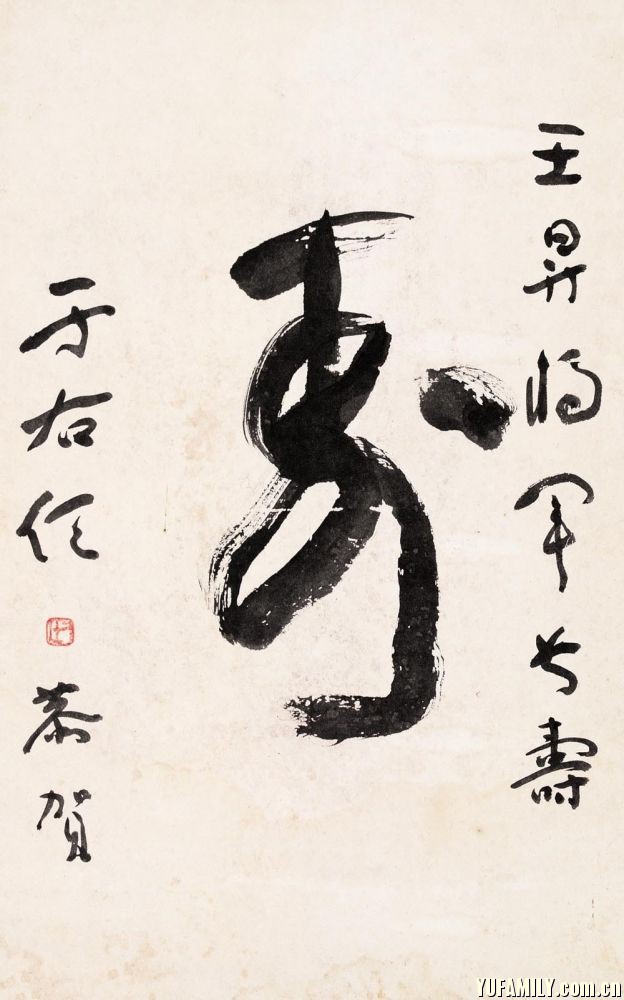 王昇将军长壽
寿
于右任
恭賀
YUFAMILY.com.cn